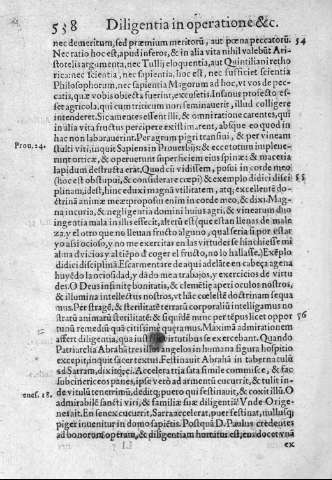 538 Diligentia in operatione &c.
nec demeritum, sed præmium meritorũ, aut pœna peccatorũ. 54
Nec ratio hoc est, apud inferos, & in alia vita nihil valebũt Ari-
stotelis argumenta, nec Tullij eloquentia, aut Quintiliani retho
rica: nec scientia, nec sapientia, hoc est, nec sufficiet scientia
Philosophorum, nec sapientia Magorum ad hoc, vt vos de pec-
catis, quæ vobis obiecta fuerint, excusetis. Insanus profecto es-
set agricola, qui cum triticum non seminauerit, illud colligere
intenderet. Sic amentes essent illi, & omni ratione carentes, qui
in alia vita fructus percipere existimarent, absque eo quod in
hac non laborauerint. Per agrum pigri transiui, & per vineam
Prou. 24. stulti viri, inquit Sapiens in Prouerbijs: & ecce totum impleue-
runt vrticæ, & operuerunt superficiem eius spinæ: & maceria
lapidum destructa erat. Quod cũ vidissem, posui in corde meo
(hoc est obstupui, & considerare cœpi) & exemplo didici disci 55
plinam, dest, hinc eduxi magnã vtilitatem, atq; excellentē do-
ctrinã animæ meæ proposui enim in corde meo, & dixi. Mag-
na incuria, & negligentia domini huius agri, & vinearum duo
ingentia mala in illis effecit, alterũ est (que estan llenas de male
za, y el otro que no lleuan fructo alguno, qual seria si por estar
yo assi ocioso, y no me exercitas en las virtudes se hinchiesse mi
alma d vicios y al tiēpo d coger el fructo, no lo hallasse.) Exēplo
didici disciplinā. Escarmentare de aqui adelāte en cabeça agena
huyēdo la ociosidad, y dādo me a trabajos, y exercicios de virtu
des. O Deus insinite bonitatis, & clemētię aperi oculos nostros,
& illumina intellectus nostros, vt hāc celestē doctrinam sequa
mur. Per stragē, & sterilitatē terrarũ corporaliũ intelligamus no
strarũ animarũ sterilitatē: & siquidē nunc per tēpus licet oppor 56
tunũ remediũ quā citissimè quęramus. Maximā admirationem
affert diligentia, qua iusti in virtutibus se exercebant. Quando
Patriarcha Abrahā tres illos angelos in humana figura hospitio
enes. 18. excepit, inquit sacer textus. Festinauit Abrahā in tabernaculũ
ad Sarram, dixitq; ei. Accelera tria sata similę commisce, & fac
subcinericeos panes, ipse verò ad armentũ cucurrit, & tulit in-
de vitulũ tenerrimũ, deditq; puero qui festinauit, & coxit illũ. O
admirabilē sancti viri, & familiæ suæ diligentiã! Vnde Orige-
nes ait. En senex cucurrit, Sarra accelerat, puer festinat, nullusq;
piger inuenitur in domo sapiētis. Posquā D. Paulus credentes
ad bonorum operum, & diligentiam hortatus est, eni docet vnā
ex